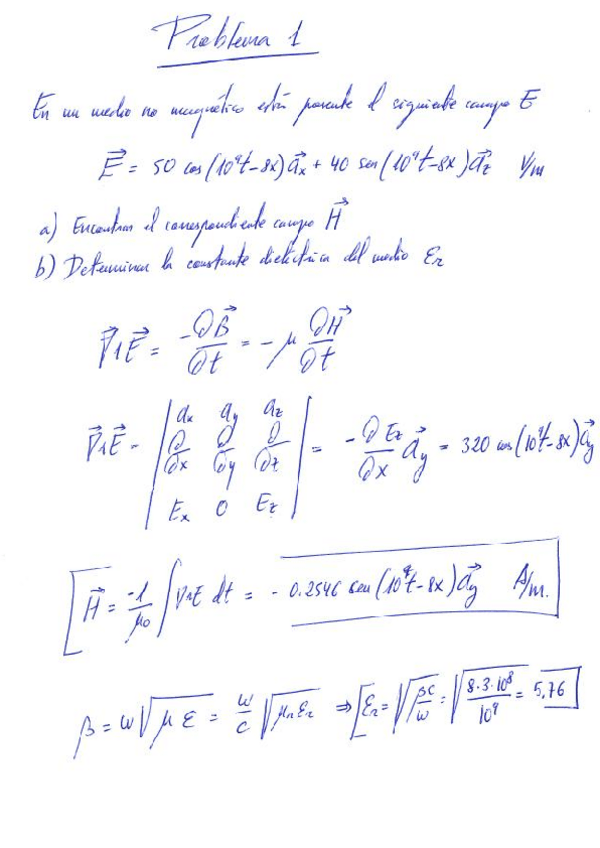 Problema 1
En un medio no magnético está presente el siguiente campo E
E⃗ = 50 cos(10⁹t-8x)a⃗x + 40 sen(10⁹t-8x)a⃗z V/m
a) Encontrar el correspondiente campo H⃗
b) Determinar la constante dieléctrica del medio εr
∇⃗∧E⃗ = -∂B⃗/∂t = -μ ∂H⃗/∂t
∇⃗∧E⃗ = | ax ay az ; ∂/∂x ∂/∂y ∂/∂z ; Ex 0 Ez | = -∂Ez/∂x a⃗y = 320 cos(10⁹t-8x)a⃗y
[H⃗ = -1/μ0 ∫∇∧E dt = -0.2546 sen(10⁹t-8x)a⃗y A/m.
β = ω√(μ ε) = ω/c √(μr εr) ⇒ [εr = √(βc/ω) = √(8·3·10⁸/10⁹) = 5,76]